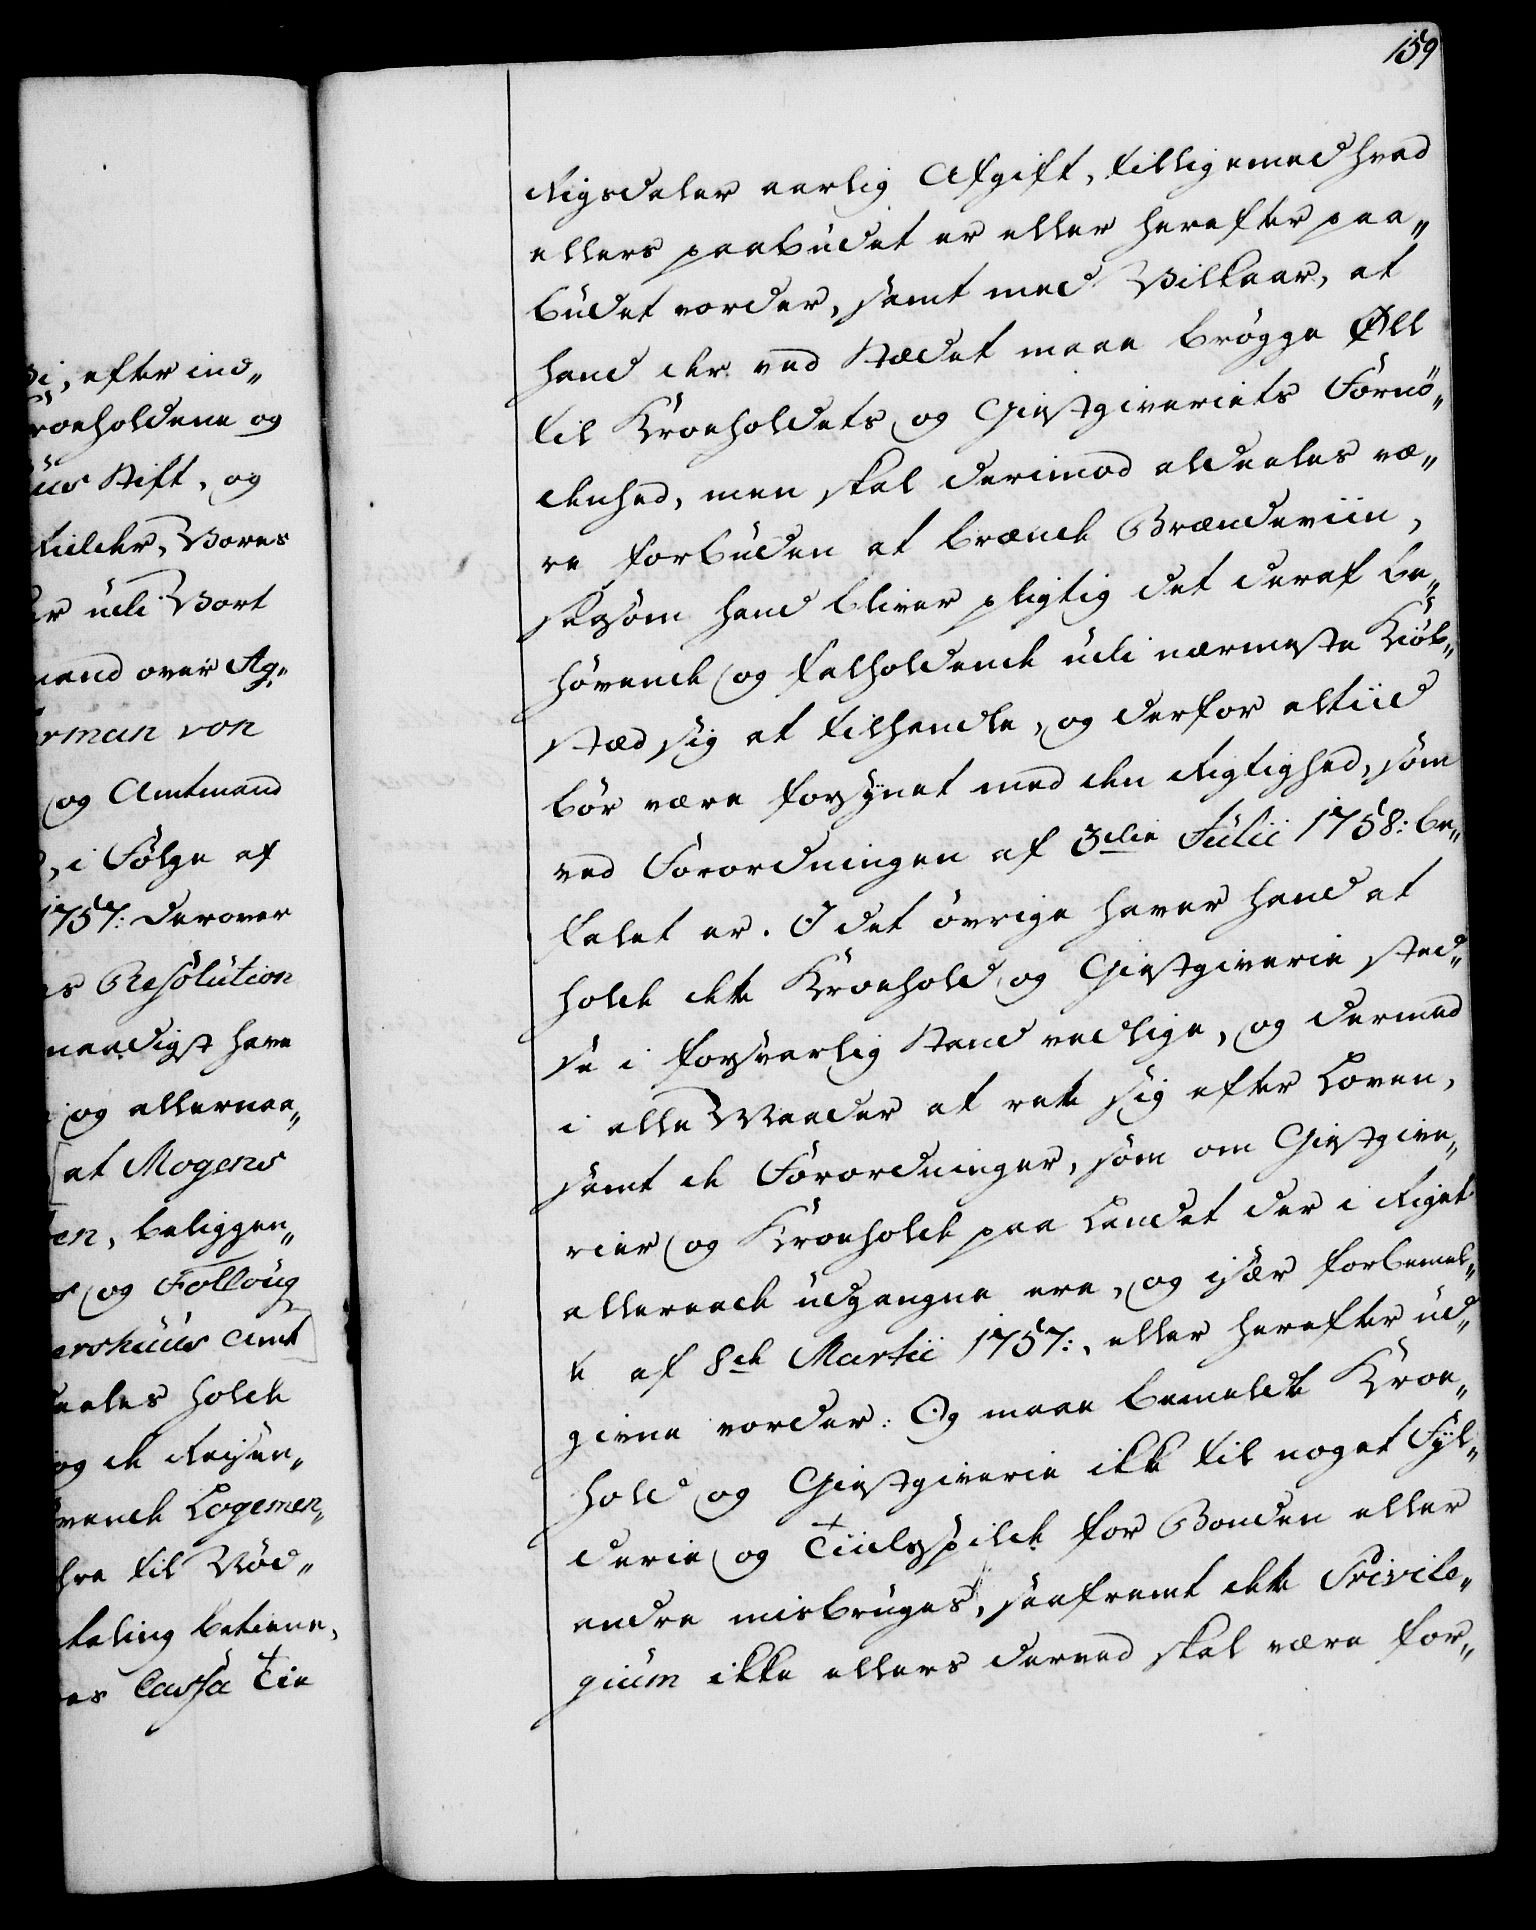 159
Rigsdaler aarlig Afgift, tilligemed hvad
ellers paabudet er eller herefter paa„
budet vorder, samt med Vilkaar, at
hand der ved Stædet maae brøgge Øll
til Kroeholdets og Giestgiveriets Fornö„
denhed, men skal derimod aldeeles væ„
re forbuden at brænde Brændeviin,
saasom hand bliver pligtig det deraf be„
høvende og falholdende udi nærmeste Kiöb„
stæd sig at tilhandle, og derfor altiid
bör være forsÿnet med den Rigtighed, som
ved Forordningen af 3die Julii 1758: be„
falet er. I det övrige haver hand at
holde dette Kroehold og Giestgiverie sted„
se i forsvarlig Stand vedlige, og dermed
i alle Maader at rette sig efter Loven,
samt de Forordninger, som om Giestgive„
rier og Kroehold paa Landet der i Riget
allereede udgangne ere, og især forbemel„
te af 8de Martii 1757:, eller herefter ud„
givne vorder: Og maae bemeldte Kroe„
hold og Giestgiverie ikke til noget Fÿl„
derie og Tiidsspilde for Bonden eller
andre misbruges, saafremt dette Privile„
gium ikke ellers derved skal være for„
Vi, efter ind„
roeholdene og
uus Stift, og
Tilder, Vores
er udi Vort
mand over Ag„
rman von
og Amtmand
, i Følge af
1757: derover
es Resolution
naadigst have
og allernaa„
at Mogens
en, beliggen„
og Folloug
ershuus Amt
deeles holde
og de Reisen„
vende Logemen„
hre til Nød„
taling betiene,
es Cassa Tie